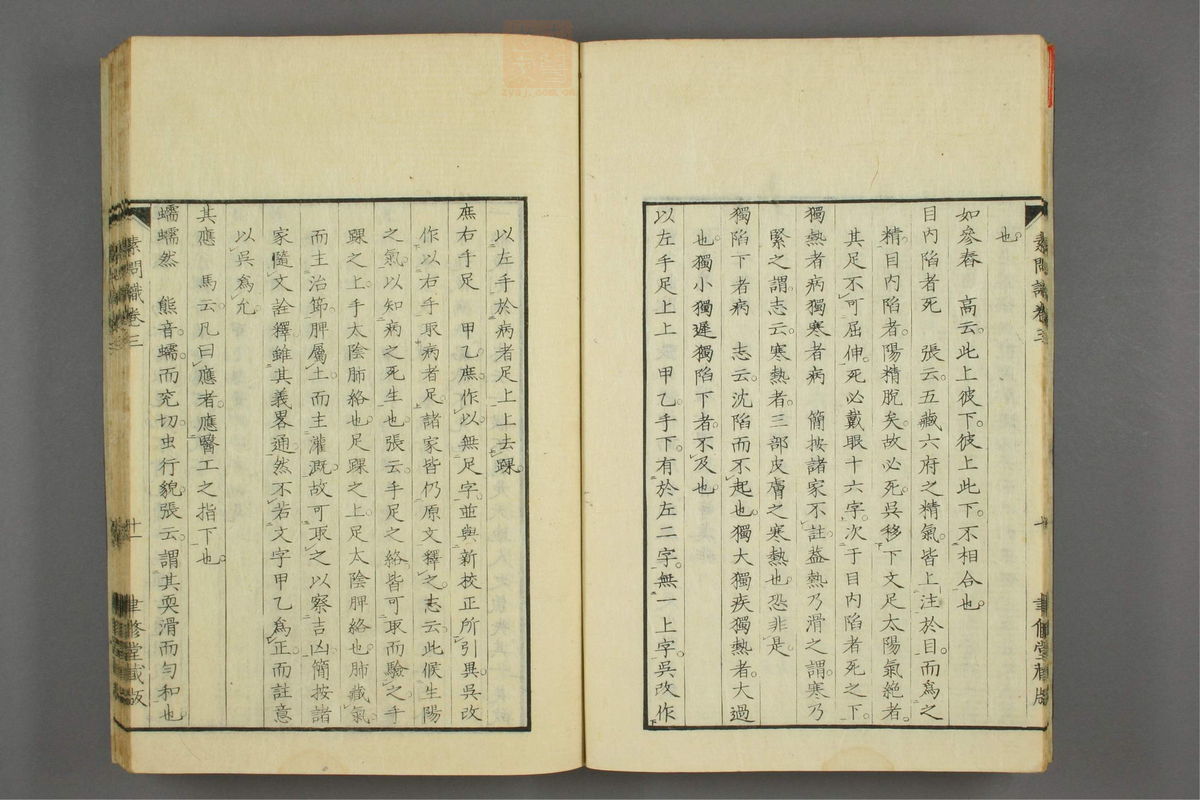 也。
如參舂　高云。此上彼下。彼上此下。不相合也。
目內陷者死　張云。五藏六府之精氣。皆上注於目。而爲之
精。目內陷者。陽精脫矣。故必死。吳移下文足太陽氣絕者。
其足不可屈伸。死必戴眼十六字。次于目內陷者死之下。
獨熱者病獨寒者病　簡按諸家不註。葢熱乃滑之謂。寒乃
緊之謂。志云。寒熱者。三部皮膚之寒熱也。恐非是。
獨陷下者病　志云。沈陷而不起也。獨大獨疾獨熱者。大過
也。獨小獨遲獨陷下者。不及也。
以左手足上上　甲乙。手下。有於左二字。無一上字。吳改作
以左手於病者足上上去踝。
庶右手足　甲乙。庶作以。無足字。並與新校正所引異。吳改
作以右手取病者足。諸家皆仍原文釋之。志云。此候生陽
之氣。以知病之死生也。張云。手足之絡。皆可取而驗之。手
踝之上。手太陰肺絡也。足踝之上。足太陰脾絡也。肺藏氣。
而主治節。脾屬土。而主灌漑。故可取之以察吉凶。簡按諸
家隨文詮釋。雖其義畧通。然不若文字甲乙爲正。而註意
以吳爲允。
其應　馬云。凡曰應者。應醫工之指下也。
蠕蠕然　熊音。蠕。而兖切。虫行貌。張云。謂其耎滑而勻和也
素問識卷三
廿一
聿修堂藏版